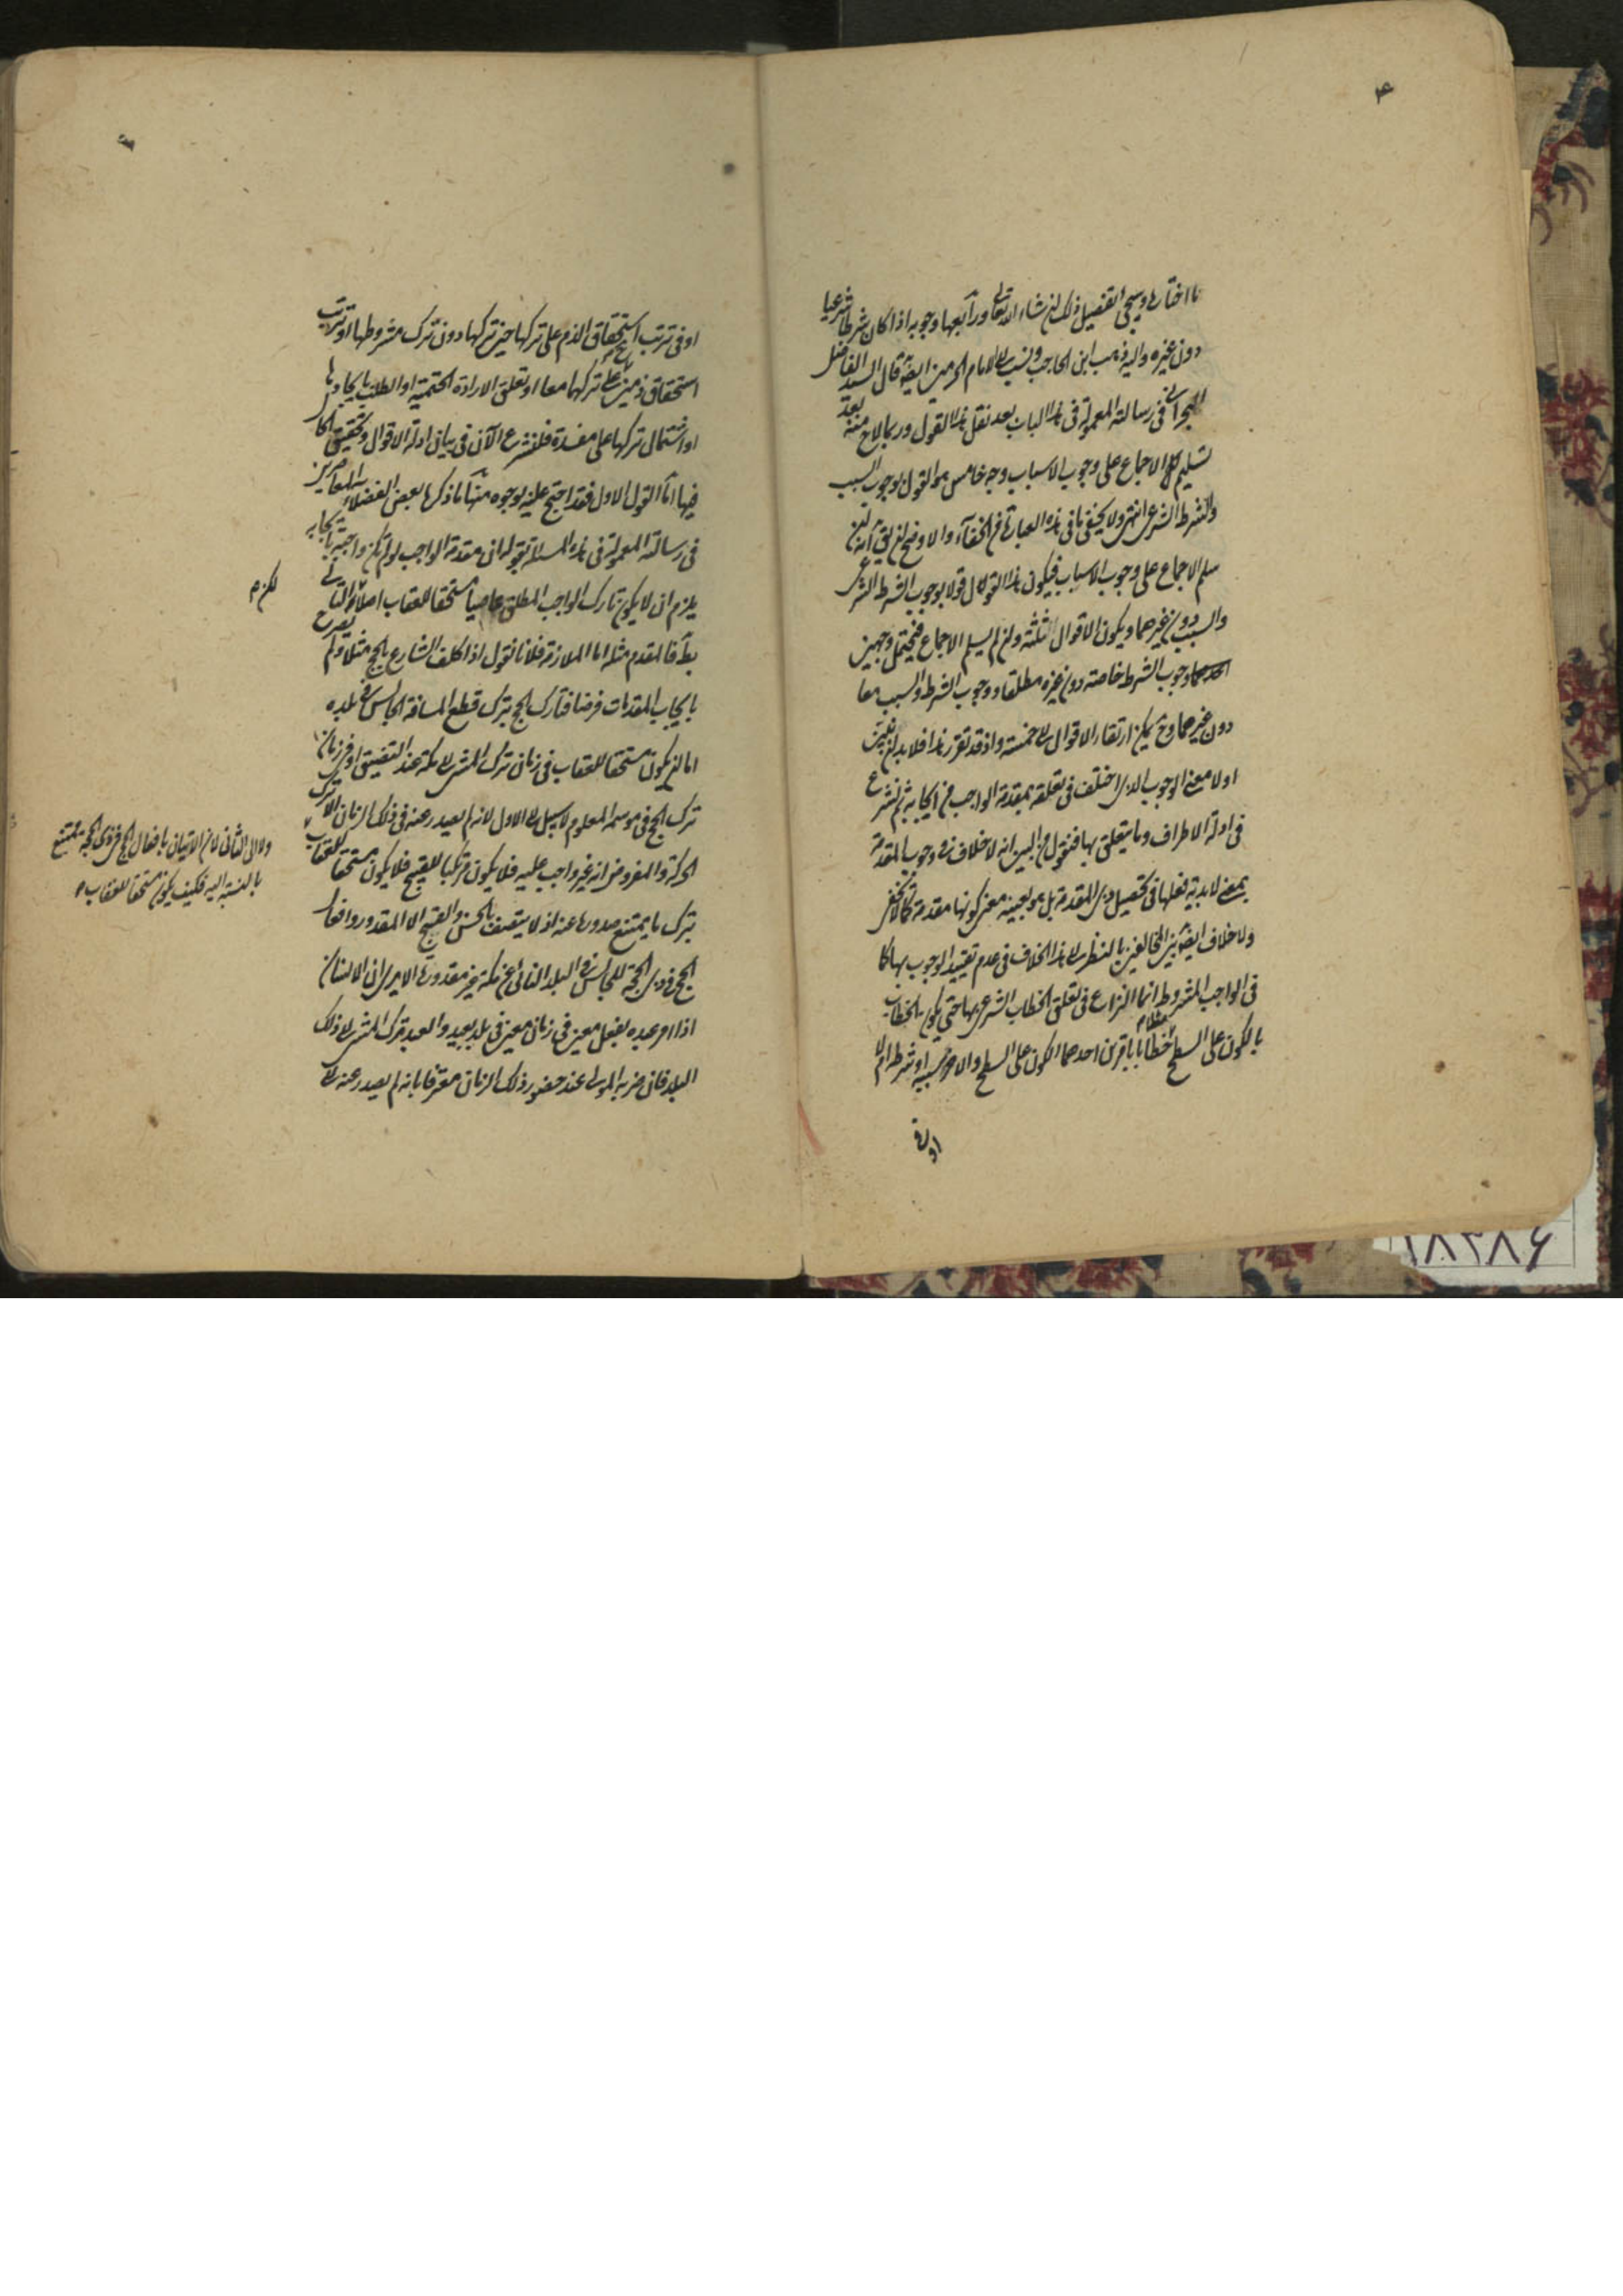 ما اختاره وسيجئ تفصيل ذلك ان شاء الله تعالى ورابعها وجوبه اذا كان شرطا شرعيا
دون غيره واليه ذهب ابن الحاجب ونسب الى الامام الحرمين ايضا قال السيد الفاضل
في رسالته المعمولة في هذا الباب بعد نقل هذا القول وربما لاح منه بعد
تسليم الاجماع على وجوب الاسباب وجه خامس هو القول بوجوب السبب
والشرط الشرعي انتهى ولا يخفى ما في هذه العبارة من الخفاء والاوضح ان يق انه ان
سلم الاجماع على وجوب الاسباب فيكون هذا القول قولا بوجوب الشرط الشرعي
والسبب دون غيرهما ويكون الاقوال ثلثة وان لم يسلم الاجماع فيحتمل وجهين
احدهما وجوب الشرط خاصته دون غيره مطلقا ووجوب الشرط والسبب معا
دون غيرهما وح يمكن ارتقاء الاقوال الى خمسة واذ قد تقرر هذا فلا بد ان نبين
اولا معنى الوجوب الذى اختلف في تعلقه بمقدمة الواجب من ايجابه ثم نشرع
في ادلة الاطراف وما يتعلق بها فنقول من البين انه لا خلاف في وجوب المقدمة
بمعنى لابدية فعلها في تحصيل ذى المقدمة بل هو بعينه معنى كونها مقدمة كما لا يخفى
ولا خلاف ايضا بين المخالفين بالنظر الى هذا الخلاف في عدم تقييد الوجوب بها كما
في الواجب المشروط انما النزاع في تعلق الخطاب الشرعي بها حتى يكون الخطاب
بالكون على السطح مثلا خطابا بامرين احدهما الكون على السطح والاخر سببه او شرطه ام لا
او في
او في ترتب استحقاق الذم على تركها حين تركها دون ترك مشروطها او ترتب
استحقاق ذمين على تركهما معا او تعلق الارادة الحتمية او الطلب بايجادها
او اشتمال تركها على مفسدة فلنشرع الآن في بيان ادلة الاقوال وتحقيق الحال
فيها اما القول الاول فقد احتج عليه بوجوه منها ما ذكره بعض الفضلاء المعاصرين
في رسالته المعمولة في هذه المسئلة بقوله ان مقدمة الواجب لو لم تكن واجبة بايجابه
يلزم ان لا يكون تارك الواجب المطلق عاصيا مستحقا للعقاب اصلا لكن التالى
بط فالمقدم مثله اما الملازمة فلانا نقول اذا كلف الشارع بالحج مثلا ولم يصرح
بايجاب المقدمات فرضا فتارك الحج بترك قطع المسافة الجالس في بلده
اما ان يكون مستحقا للعقاب في زمان ترك المشي الى مكة عند التضيق او في زمان
ترك الحج في موسمه المعلوم لا سبيل الى الاول لانه لم يصدر عنه في ذلك الزمان الا ترك
الحركة والمفروض انه غير واجب عليه فلا يكون مرتكبا للقبيح فلا يكون مستحقا للعقاب
بترك ما يمتنع صدوره عنه اذ لا يتصف بالحسن والقبيح الا المقدور وافعال
الحج في ذى الحجة للجالس في البلد النائي عن مكة غير مقدورة الا يرى ان الانسان
اذا امر عبده بفعل معين في زمان معين في بلد بعيد والعبد ترك المشي الى ذلك
البلد فان ضربه المولى عند حضور ذلك الزمان معترفا بانه لم يصدر عنه الى
لكن م
ولا الى الثاني لان الاتيان بافعال الحج في ذى الحجة ممتنع
بالنسبة اليه فكيف يكون مستحقا للعقاب